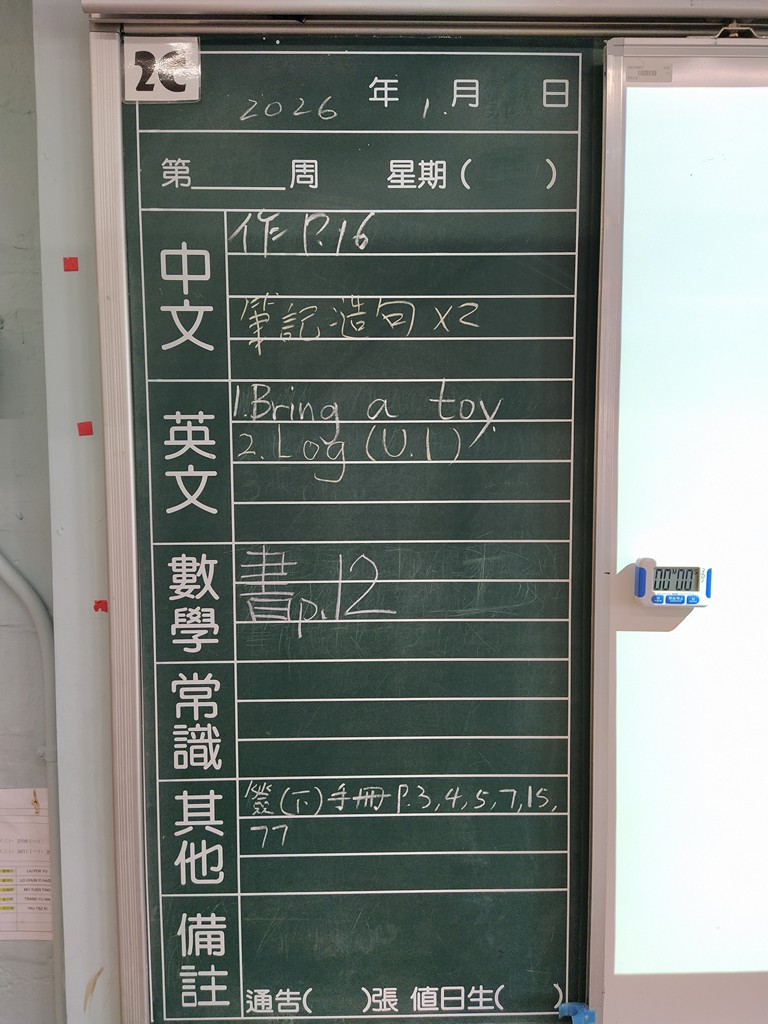 2C
2026 年 1 月 日
第______周 星期( )
中文
作 P.16
筆記造句 x2
英文
1.Bring a toy
2.Log (U.1)
數學
書p.12
常識
其他
簽(下)手冊 P.3,4,5,7,15,
77
備註
通告( )張 值日生( )
00 00